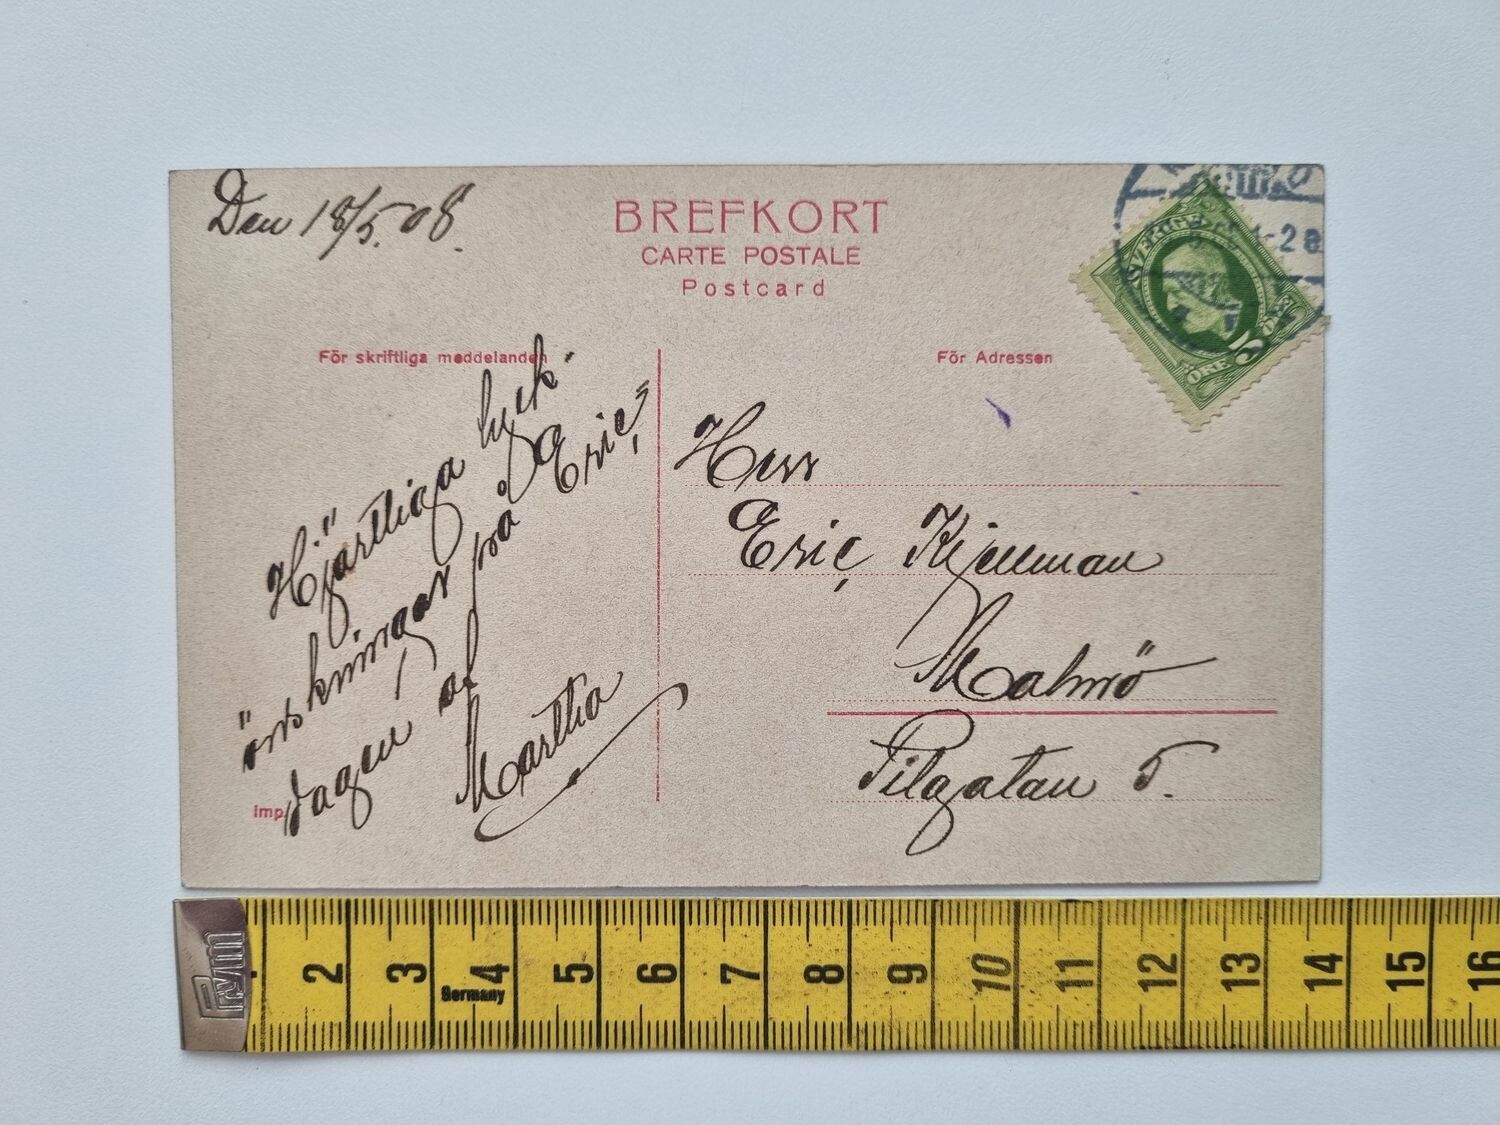 Den 18/5. 08.
BREFKORT
CARTE POSTALE
Postcard
För skriftliga meddelanden
För Adressen
SVERIGE
5
ÖRE
ÖRE
1-2 e
Hjärtliga lyck-
önskningar på Eric,s
dagen af
Martha
Imp.
Herr
Eric Kjellman
Malmö
Pilgatan 5.
Prym
2 3 4 5 6 7 8 9 10 11 12 13 14 15 16
Germany